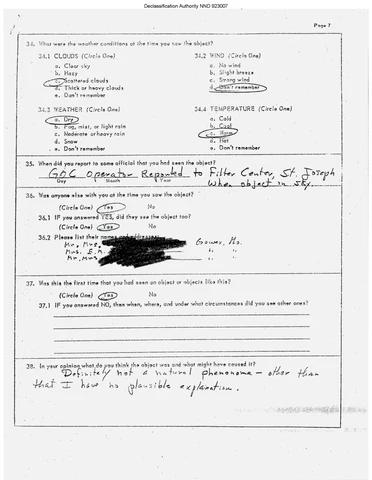 Declassification Authority NND 923007
Page 7
34. What were the weather conditions at the time you saw the object?
34.1 CLOUDS (Circle One) 34.2 WIND (Circle One)
a. Clear sky a. No wind
b. Hazy b. Slight breeze
c. Scattered clouds c. Strong wind
d. Thick or heavy clouds d. Don't remember
e. Don't remember
34.3 WEATHER (Circle One) 34.4 TEMPERATURE (Circle One)
a. Dry a. Cold
b. Fog, mist, or light rain b. Cool
c. Moderate or heavy rain c. Warm
d. Snow d. Hot
e. Don't remember e. Don't remember
35. When did you report to some official that you had seen the object?
GOC Operator Reported to Filter Center, St. Joseph
Day Month Year When object in sky.
36. Was anyone else with you at the time you saw the object?
(Circle One) Yes No
36.1 IF you answered YES, did they see the object too?
(Circle One) Yes No
36.2 Please list their names
Mr. Mrs. Gower, Mo.
Mrs. E.M. " "
Mr. Mrs " "
37. Was this the first time that you had seen an object or objects like this?
(Circle One) Yes No
37.1 IF you answered NO, then when, where, and under what circumstances did you see other ones?
38. In your opinion what do you think the object was and what might have caused it?
Definitely not a natural phenonoma - other than
that I have no plausible explanation.